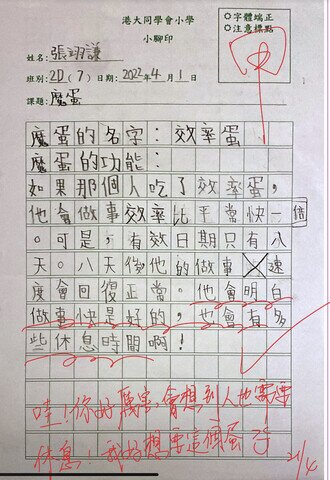 港大同學會小學
小腳印
◎字體端正
◎注意標點
姓名：張翊謙
班別：2D（7）日期：2022年4月1日
課題：魔蛋
甲
魔蛋的名字：效率蛋
魔蛋的功能：
如果那個人吃了效率蛋，
他會做事效率比平常快一倍
。可是，有效日期只有八
天。八天後他的做事速
度會回復正常。他會明白
做事快是好的，也會有多
些休息時間啊！
哇！你好厲害，會想到人也需要
休息！我好想要這個蛋子
21/4